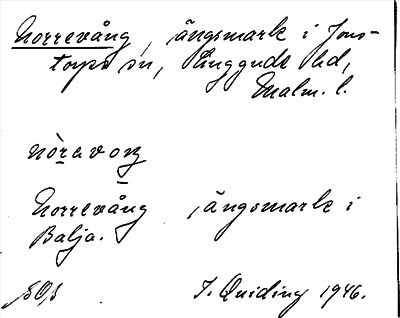 Norrevång, ängsmark i Jons-
torps sn, Luggude hd,
Malm. l.
nòravoŋ
Norrevång, ängsmark i
Balja.
J. Quiding 1946.